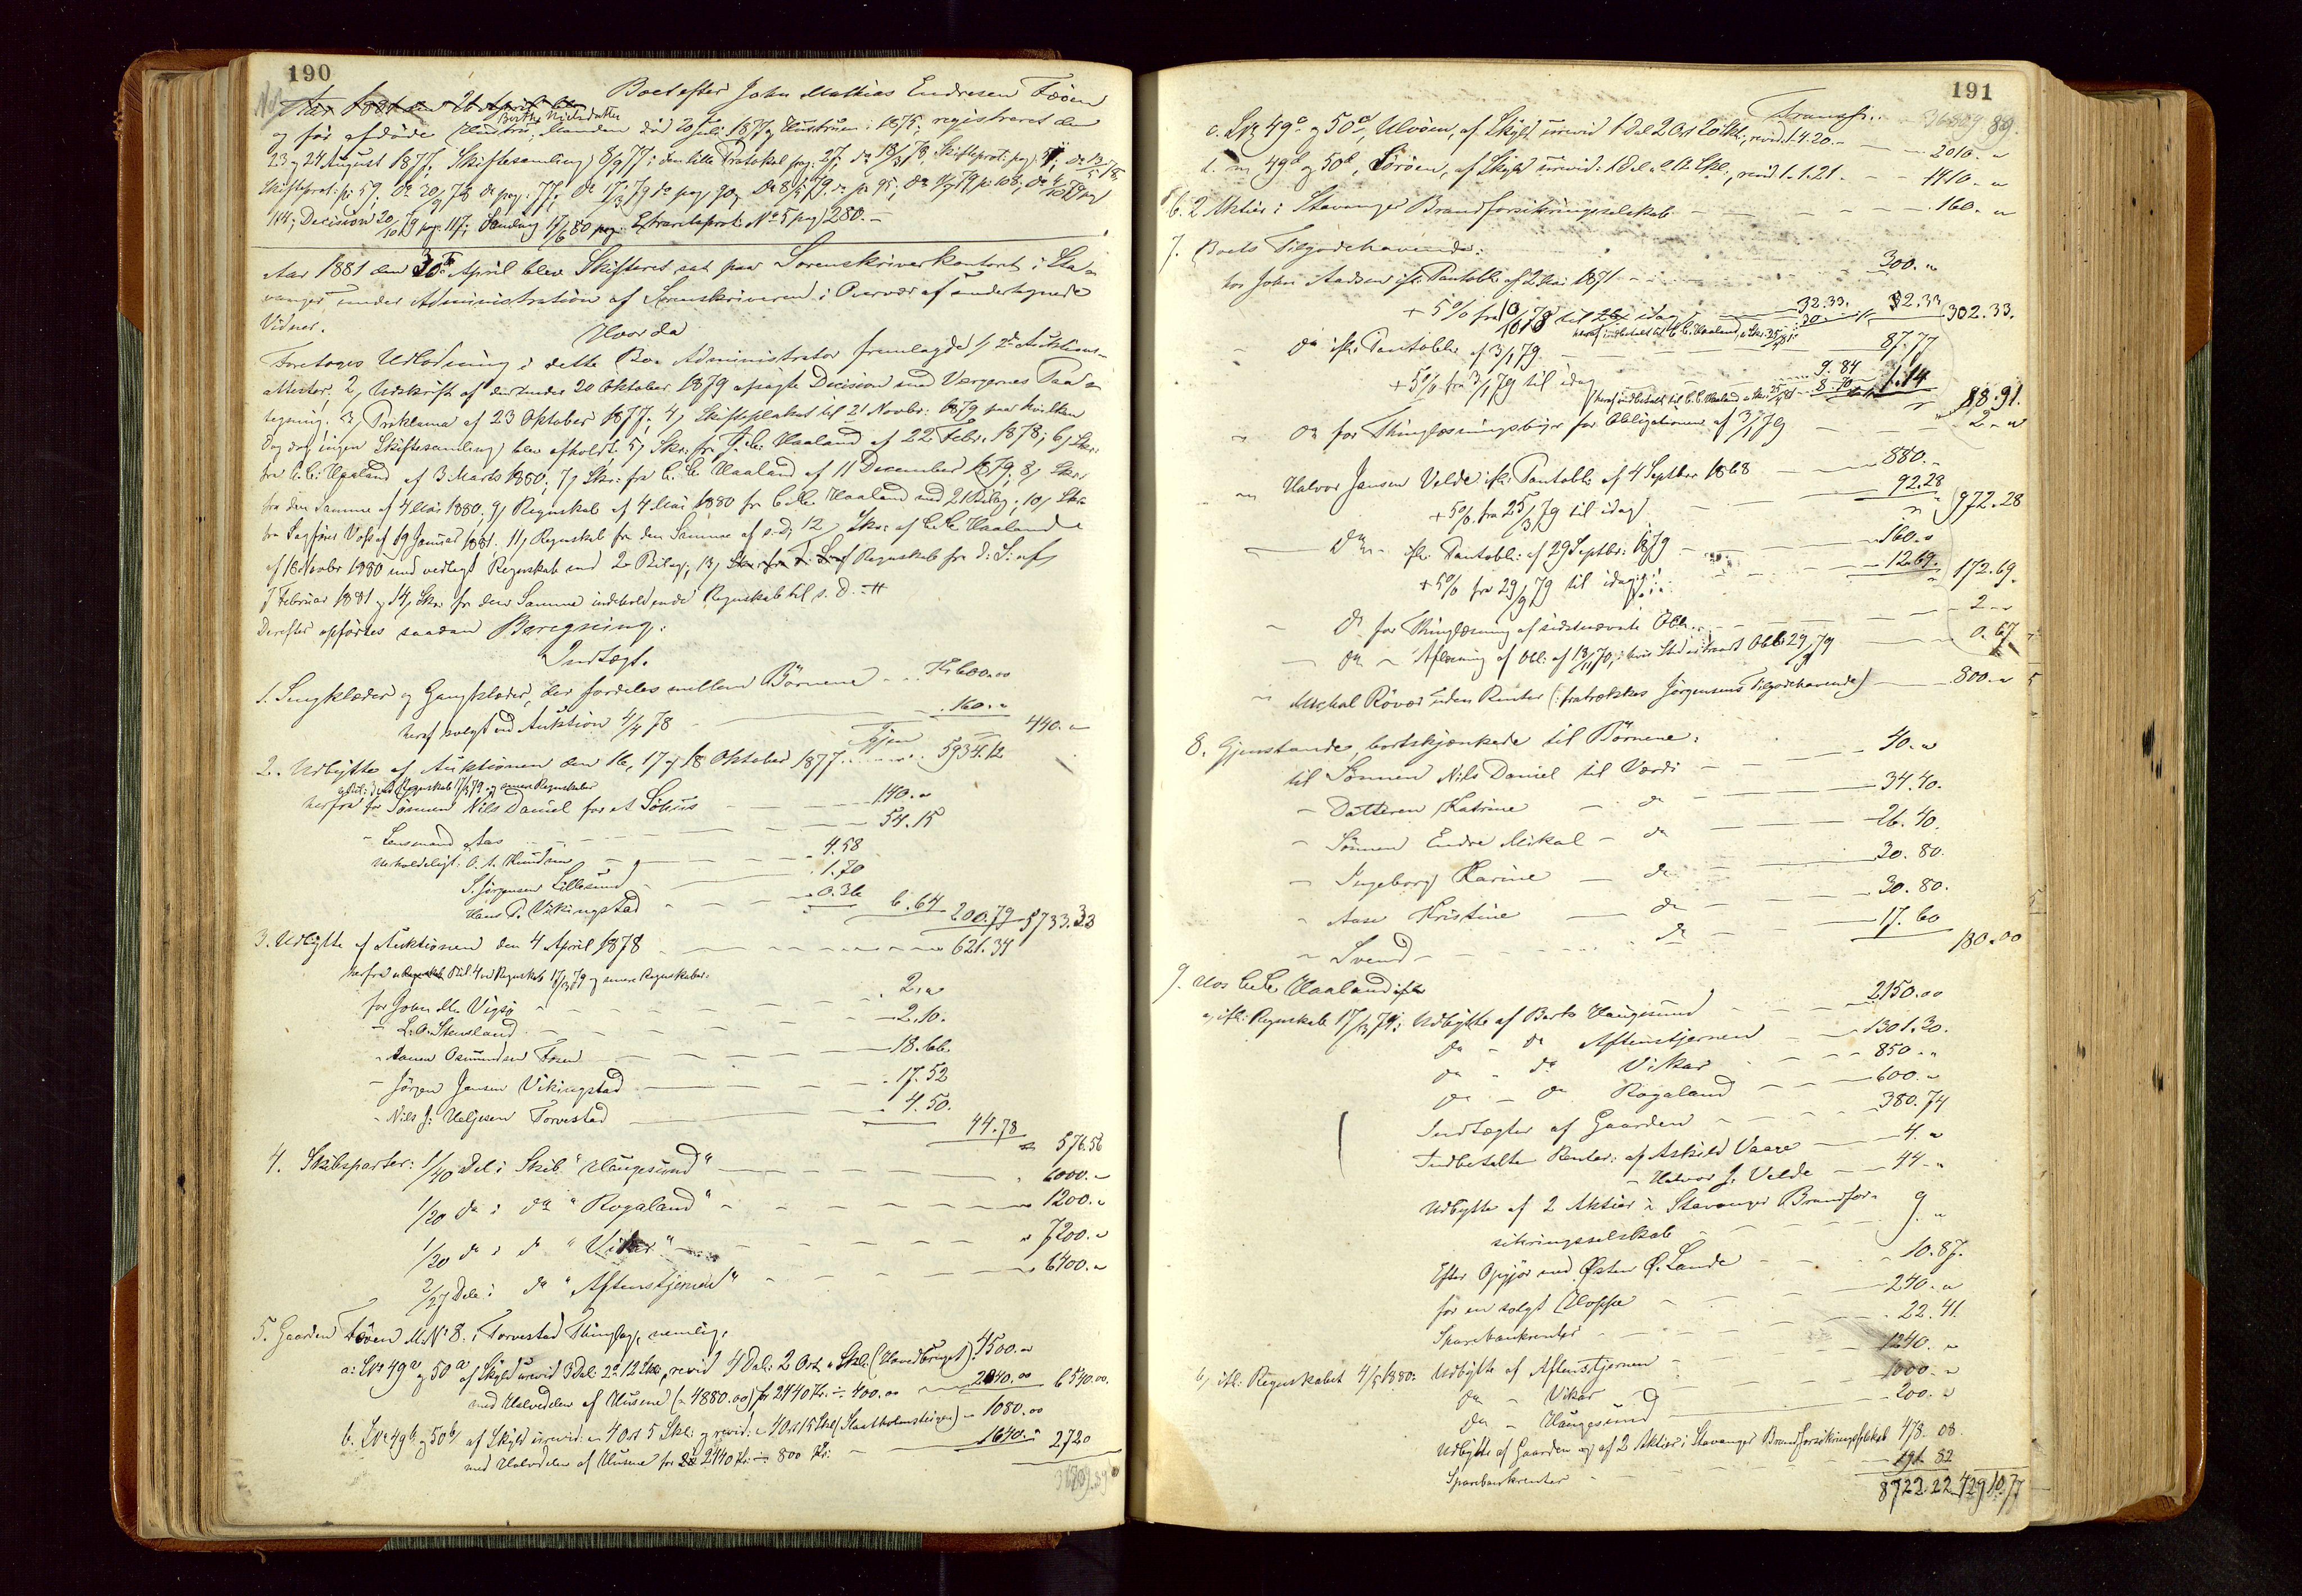 190
Boet efter John Mathias Endresen Føöen
og før afdöde Hustru Berthe Nielsdatter, Manden död 20 Juli 1877 og Hustruen i 1875; registreret den
23 og 24 August 1877, Skiftesamling 8/9 77 i den lille Protokol pag: 27; do 18/3 78, Skifteprot: pag. 51, do 13/5 78
Skifteprot: p: 59, do 30/9 78 do pag. 77; do 17/3 79 do pag. 90, do 8/5 79 do p: 95, do 11/9 79 p: 108, do 4/10 79 pag
114; Decision 20/10 79 pag. 117; Samling 17/6 80 pag: Extraretsprot: No 5 pag 280.-
Aar 1881 den 30te April blev Skifteret sat paa Sorenskriverkontoret i Sta-
vanger under Administration af Sorenskriveren i Overvær af undertegnede
Vidner.
Hvorda
Foretoges Udlodning i dette Bo. Administrator fremlagde 1, 2de Auktions-
akter, 2, Udskrift af den under 20 Oktober 1879 afsagte Decision med Værgernes Paa-
tegning. 3, Proklama af 23 Oktober 1877; 4, Skifteplakat til 21 Novbr: 1879 paa hvilken
Dag dog ingen Skiftesamling blev afholdt. 5, Skr. fra C. C. Haaland af 22 Febr. 1878; 6, Skr:
fra C. C. Haaland af 3 Marts 1880; 7, Skr: fra C. C. Haaland af 11 December 1879; 8, Skr:
fra den Samme af 4 Mai 1880. 9, Regnskab af 4 Mai 1880 fra C. C. Haaland med 21 Bilag; 10, Skr.
fra Sagförer Voss af 19 Januar 1881. 11, Regnskab fra den Samme af s. D; 12, Skr: af C. C. Haaland
af 16 Novbr 1880 med vedlagt Regnskab med 2 Bilag; 13, Regnskab fra d: S: af
7 Februar 1881 og 14, Skr. fra den Samme indeholdende Regnskab til s. D.
Derefter opförtes saadan Beregning:
Indtægt.
1. Sengklæder og Gangklæder, der fordeles mellem Börnene Kr 600.00
heraf solgt ved Auktion 4/4 78 160.- 440.-
igjen
2. Udbytte af Auktionen den 16, 17 og 18 Oktober 1877 5934.12
herfra for Sönnen Nils Daniel for et Söhus 140.-
- Lensmand Aas 54.15
Uerholdeligt: O. A. Knudsen 4.58
S. Jörgensen Lillesund 1.70
Hans P. Vikingstad 0.36 6.64 200.79 5733.33
3. Udbytte af Auktionen den 4 April 1878 621.34
herfra Bil. 4 ved Regnskab 17/3 79 og senere Regnskaber:
for John M. Vigsö 2.-
- L. O. Stensland 2.10.
- Aanen Osmundsen Fosen 18.66
- Jörgen Jansen Vikingstad 17.52
- Nils J. Heljesen Torvestad 4.50.
44.78 576.56
4. Skibsparter: 1/40 Del i Skib "Haugesund" 6000.-
1/20 do i do "Rogaland" 1200.-
1/20 do i do "Vikar" 7200.-
2/27 Dele i do "Aftenstjernen" 6400.-
5. Gaarden Føöen M. No 8. i Torvestad Thinglag, nemlig:
a: LNo 49a og 50a af Skyld urevid 3 Dal: 2 o 12 Sk, revid 4 Dal: 2 Ort - Skl: (Hovedbruget) 4500.-
med Halvdelen af Husene (- 4880.00) for 2440 Kr. ÷ 400.00 2040.00 6540.00.
b. LNo 49b og 50b, af Skyld urevid: - 4 Ort 5 Skl: og revid: - 4 Ort 15 Skl: 1080.00
med Halvdelen af Husene for 2440 Kr: ÷ 800 Kr: 1640.- 2720
191
Transp:
c. LNo 49c og 50c, Ulvöen, af Skyld urevid 1 Dal 2 Ort 20 Skl:, revid. 1.4.20. 2010.-
d. - 49d og 50d, Söröen, af Skyld urevid: 1 Dal - o 12 Skl:, revid 1.1.21. 1410.-
6. 2 Aktier i Stavanger Brandforsikringsselskab 160.-
7. Boets Tilgodehavende:
hos John Aadsen ifl: Pantobl: af 2 Mai 1871 300.-
+ 5% fra 10/10 78 til idag 32.33. 32.33 302.33.
do ifl: Pantobl: af 3/1 79 87.77
+ 5% fra 3/1 79 til idag 9.84
8.70 1.14 88.91.
- do for Thinglæsningsbiger for Obligationen af 3/1 79 2.-
- Halvor Jansen Velde ifl: Pantobl: af 4 Septbr 1868 880.-
+ 5% fra 25/3 79 til idag 92.28 972.28
do - ifl: Pantobl: af 29 Septbr: 1879 160.-
+ 5% fra 29/9 79 til idag 12.69. 172.69.
- do for Thinglæsning af sidstnævnte Obl: 2.-
- do - Aflæsning af Obl: af 18/11 70, i hvis Sted er traadt Obl: 29/9 79 0.67
- Michal Rövær uden Renter (: fratrækkes Jörgensens Tilgodehavende) 800.-
8. Gjenstande, bortskjænkede til Börnene:
til Sönnen Nils Daniel til Værdi 40.-
- Datteren Katrine - do 34.40.
- Sönnen Endre Mikal - do 26.40.
- Ingeborg Karine - do 30.80.
- Aase Kristine - do 30.80.
- Svend - do 17.60
180.00
9. Hos C. C. Haaland
a, ifl: Regnskab 17/3 79: Udbytte af Bark Haugesund 2150.00
do - do Aftenstjernen 1301.30.
do - do Vikar 850.-
do - do Rogaland 600.-
Indtægter af Gaarden 380.74
Indbetalte Renter: af Askild Vaage 4.-
- Halvor J. Velde 44.-
Udbytte af 2 Aktier i Stavanger Brandfor-
sikringsselskab 9.-
Efter Opgjör med Østen Ø. Lande 10.87.
for en solgt Hoppe 240.-
Sparebankrenter 22.41.
b, ifl: Regnskabet 4/5 1880: Udbytte af Aftenstjernen 1240.-
do - Vikar 1000.-
do - Haugesund 200.-
Udbytte af Gaarden og af 2 Aktier i Stavanger Brandforsikringsselskab 478.08.
Sparebankrenter 191.82
8722.22 42910.77